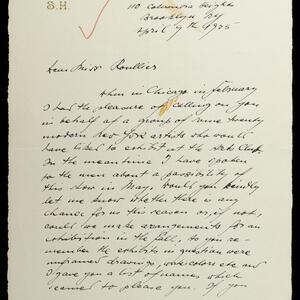 S.H.
110 Columbia Heights
Brooklyn Ny
April 9th 1925
Dear Miss Roullier
When in Chicago in February
I had the pleasure of calling on you
in behalf of a group of some twenty
modern New York artists who would
have liked to exhibit at the Arts Club.
In the meantime I have spoken
to the men about a possibility of
this show in May. Would you kindly
let me know whether there is any
chance for us this season or, if not,
could we make arrangements for an
exhibition in the fall. As you re-
member the exhibits in question were
unframed drawings, watercolors etc and
I gave you a list of names which
seemed to please you. If you